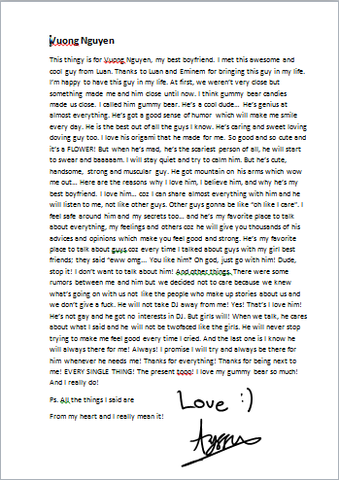 Vuong Nguyen
This thingy is for Vuong Nguyen, my best boyfriend. I met this awesome and
cool guy from Luan. Thanks to Luan and Eminem for bringing this guy in my life.
I'm happy to have this guy in my life. At first, we weren't very close but
something made me and him close until now. I think gummy bear candies
made us close. I called him gummy bear. He's a cool dude... He's genius at
almost everything. He's got a good sense of humor which will make me smile
every day. He is the best out of all the guys I know. He's caring and sweet loving
doving guy too. I love his origami that he made for me. So good and so cute and
it's a FLOWER! But when he's mad, he's the scariest person of all, he will start
to swear and baaaaam. I will stay quiet and try to calm him. But he's cute,
handsome, strong and muscular guy. He got mountain on his arms which wow
me out... Here are the reasons why I love him, I believe him, and why he's my
best boyfriend. I love him... coz I can share almost everything with him and he
will listen to me, not like other guys. Other guys gonna be like "oh like I care". I
feel safe around him and my secrets too... and he's my favorite place to talk
about everything, my feelings and others coz he will give you thousands of his
advices and opinions which make you feel good and strong. He's my favorite
place to talk about guys coz every time I talked about guys with my girl best
friends; they said "eww omg... You like him? Oh god, just go with him! Dude,
stop it! I don't want to talk about him! And other things. There were some
rumors between me and him but we decided not to care because we knew
what's going on with us not like the people who make up stories about us and
we don't give a fuck. He will not take DJ away from me! Yes! That's I love him!
He's not gay and he got no interests in DJ. But girls will! When we talk, he cares
about what I said and he will not be twofaced like the girls. He will never stop
trying to make me feel good every time I cried. And the last one is I know he
will always there for me! Always! I promise I will try and always be there for
him whenever he needs me! Thanks for everything! Thanks for being next to
me! EVERY SINGLE THING! The present tooo! I love my gummy bear so much!
And I really do!
Ps. All the things I said are
From my heart and I really mean it!
Love :)